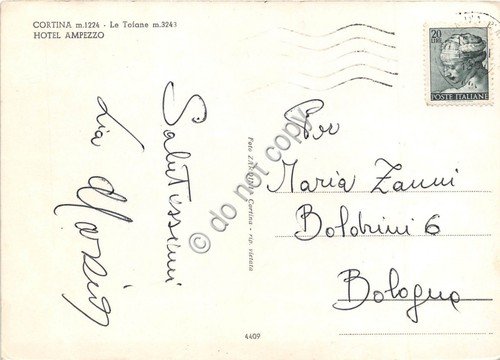 CORTINA m.1224 - Le Tofane m.3243
HOTEL AMPEZZO
Salutissimi
Lia
20
LIRE
POSTE ITALIANE
Per
Maria Zanni
Boldrini 6
Bologna
Cortina - rip. vietata
4409
© do not copy